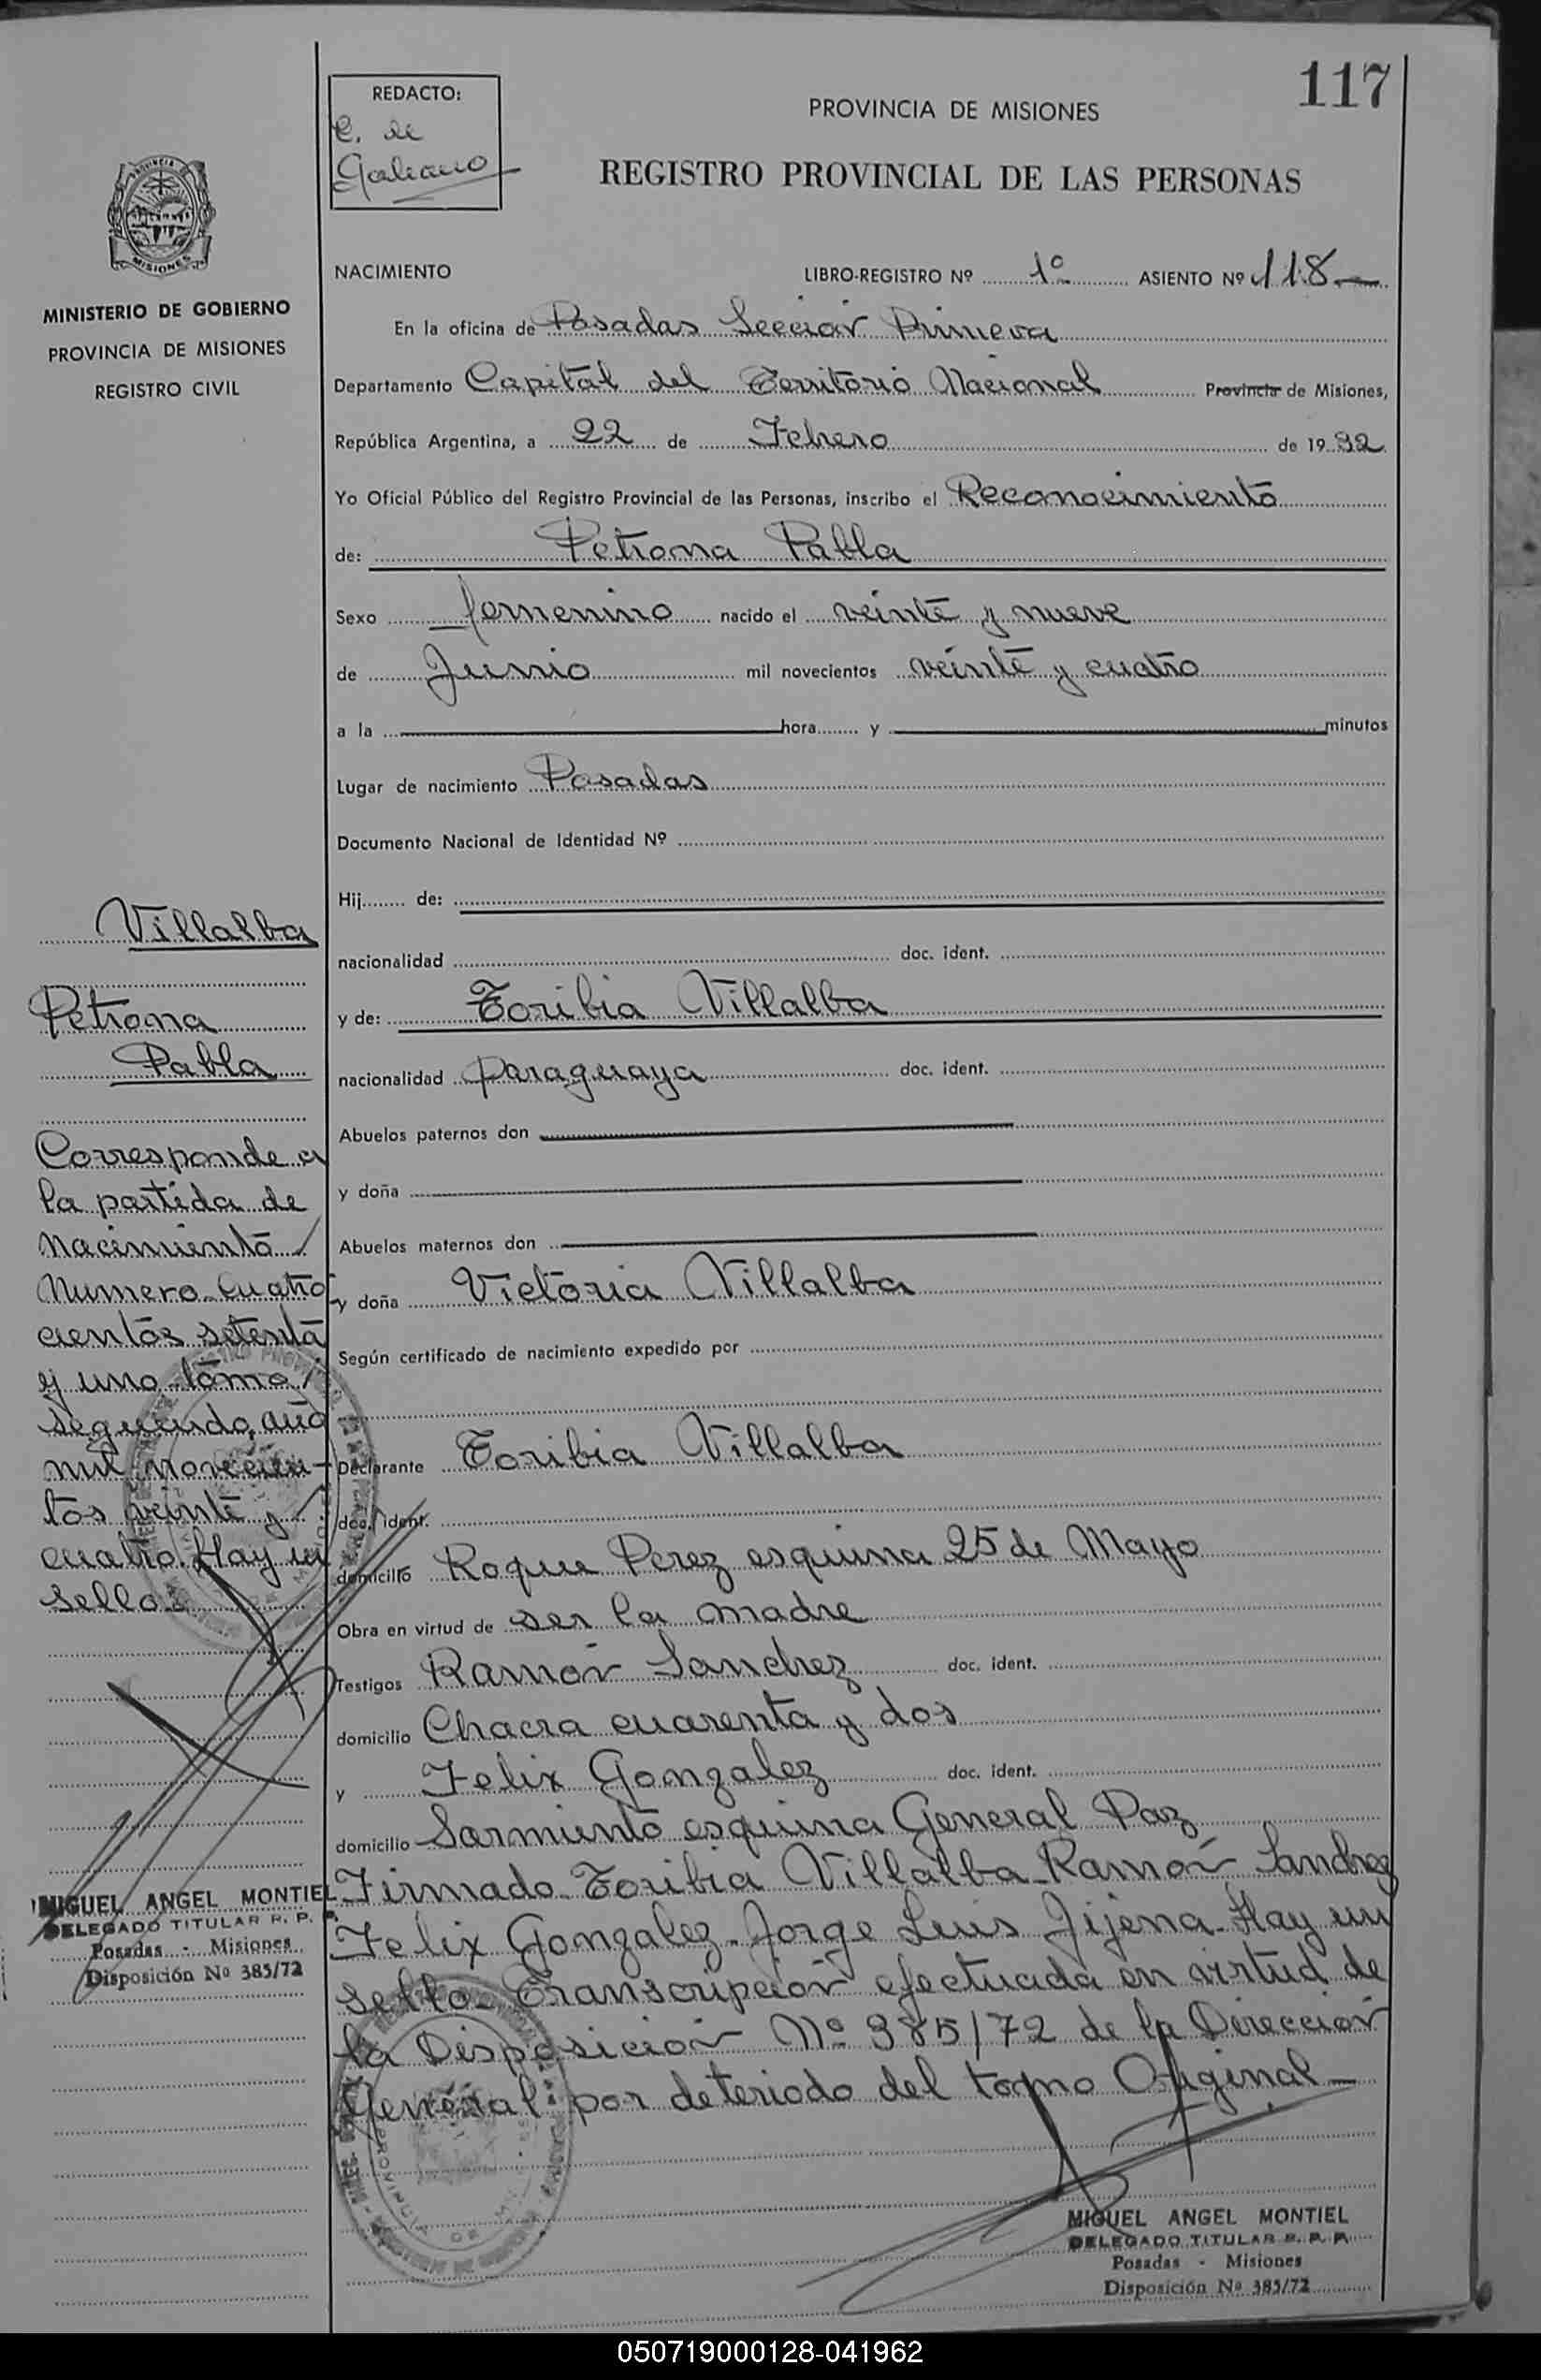 117
REDACTO:
C. de
Galeano
PROVINCIA DE MISIONES
REGISTRO PROVINCIAL DE LAS PERSONAS
MISIONES
MINISTERIO DE GOBIERNO
PROVINCIA DE MISIONES
REGISTRO CIVIL
NACIMIENTO LIBRO-REGISTRO Nº 1º ASIENTO Nº 118
En la oficina de Posadas Sección Primera
Departamento Capital del Territorio Nacional Provincia de Misiones,
República Argentina, a 22 de Febrero de 1932
Yo Oficial Público del Registro Provincial de las Personas, inscribo el Reconocimiento
de: Petrona Pabla
Sexo femenino nacido el veinte y nueve
de Junio mil novecientos veinte y cuatro
a la hora y minutos
Lugar de nacimiento Posadas
Documento Nacional de Identidad Nº
Hij de:
nacionalidad doc. ident.
y de: Toribia Villalba
nacionalidad paraguaya doc. ident.
Abuelos paternos don
y doña
Abuelos maternos don
y doña Victoria Villalba
Según certificado de nacimiento expedido por
Declarante Toribia Villalba
doc. ident.
domicilio Roque Perez esquina 25 de Mayo
Obra en virtud de ser la madre
Testigos Ramón Sanchez doc. ident.
domicilio Chacra cuarenta y dos
y Felix Gonzalez doc. ident.
domicilio Sarmiento esquina General Paz
Firmado Toribia Villalba Ramón Sanchez
Felix Gonzalez. Jorge Luis Jijena. Hay un
sello. Transcripción efectuada en virtud de
la Disposición Nº 385/72 de la Dirección
General por deteriodo del tomo Original
MIGUEL ANGEL MONTIEL
DELEGADO TITULAR R. P. P.
Posadas - Misiones
Disposición Nº 385/72
Villalba
Petrona
Pabla
Corresponde a
la partida de
Nacimiento /
Numero Cuatro
cientos setenta
y uno tomo /
segundo, año
mil novecien-
tos veinte y /
cuatro. Hay un
sello
MIGUEL ANGEL MONTIEL
DELEGADO TITULAR R. P. P.
Posadas - Misiones
Disposición Nº 385/72
050719000128-041962